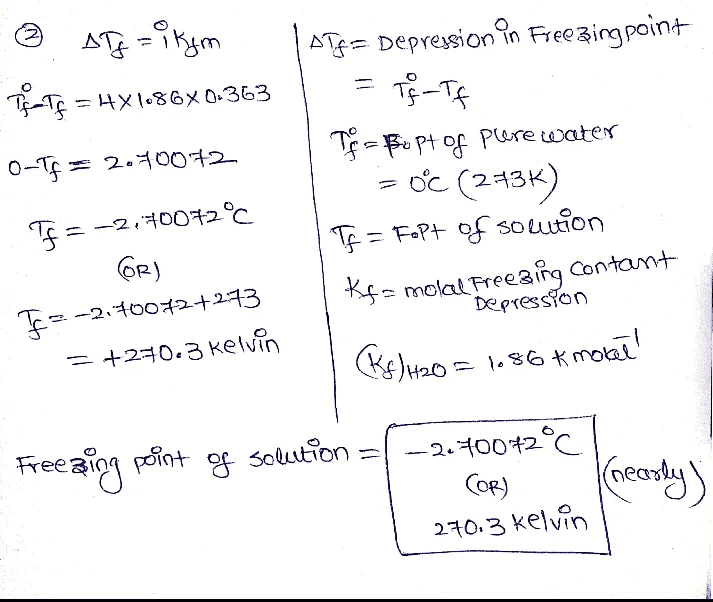 ② ΔTf = i Kfm
T°f-Tf = 4×1.86×0.363
0-Tf = 2.70072
Tf = -2.70072°C
(OR)
Tf = -2.70072+273
= +270.3 kelvin
ΔTf = Depression in Freezing point
= T°f-Tf
T°f = F.pt of pure water
= 0°C (273K)
Tf = F.Pt of solution
Kf = molal Freezing Contant
Depression
(Kf)H2O = 1.86 K molal⁻¹
Freezing point of solution = -2.70072°C
(OR) (nearly)
270.3 kelvin